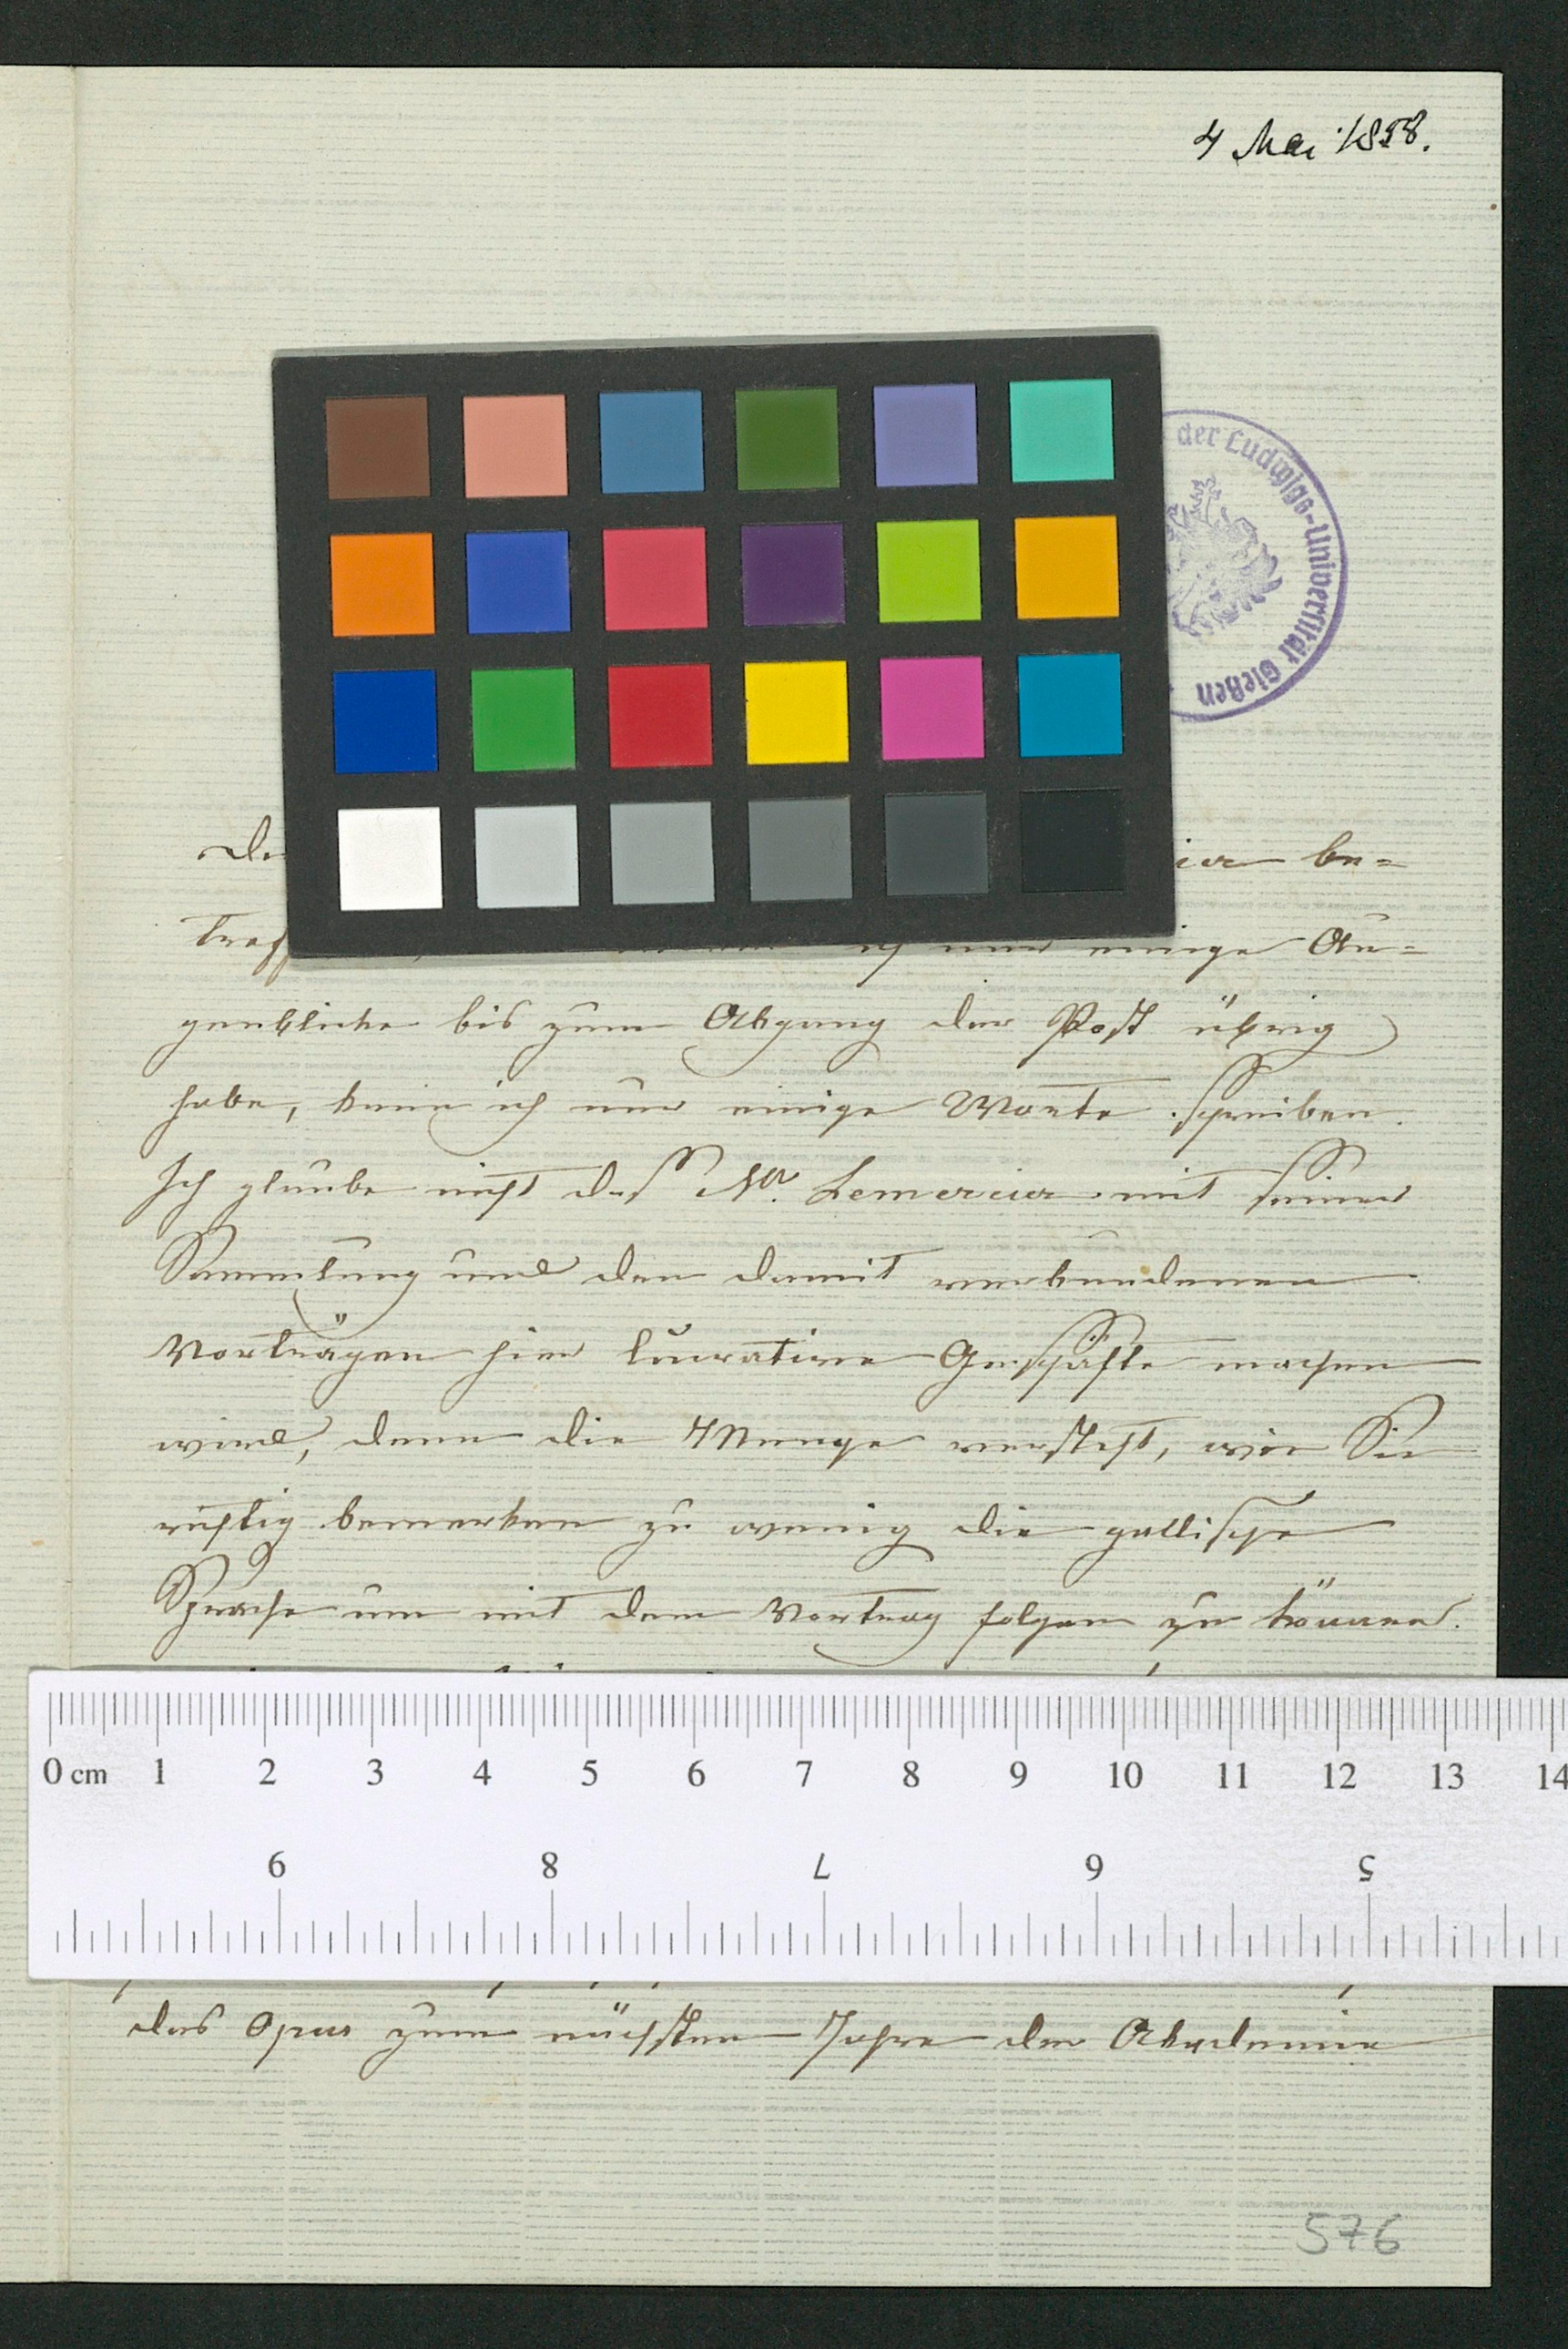 4 Mai 1858.
der Ludwigs-Universität Gießen
be=
nur einige Au=
genblicke bis zum Abgang der Post übrig
habe, kann ich nur einige Worte schreiben.
Ich glaube nicht daß Mr. Lemercier mit seiner
Sammlung und den damit verbundenen
Vorträgen hier lucrative Geschäfte machen
wird, denn die Menge versteht, wie Sie
richtig bemerken zu wenig die gallische
Sprache um mit dem Vortrag folgen zu können.
0 cm 1 2 3 4 5 6 7 8 9 10 11 12 13 14
9 8 7 6 5
das Opus zum nächsten Jahre der Akademie
576